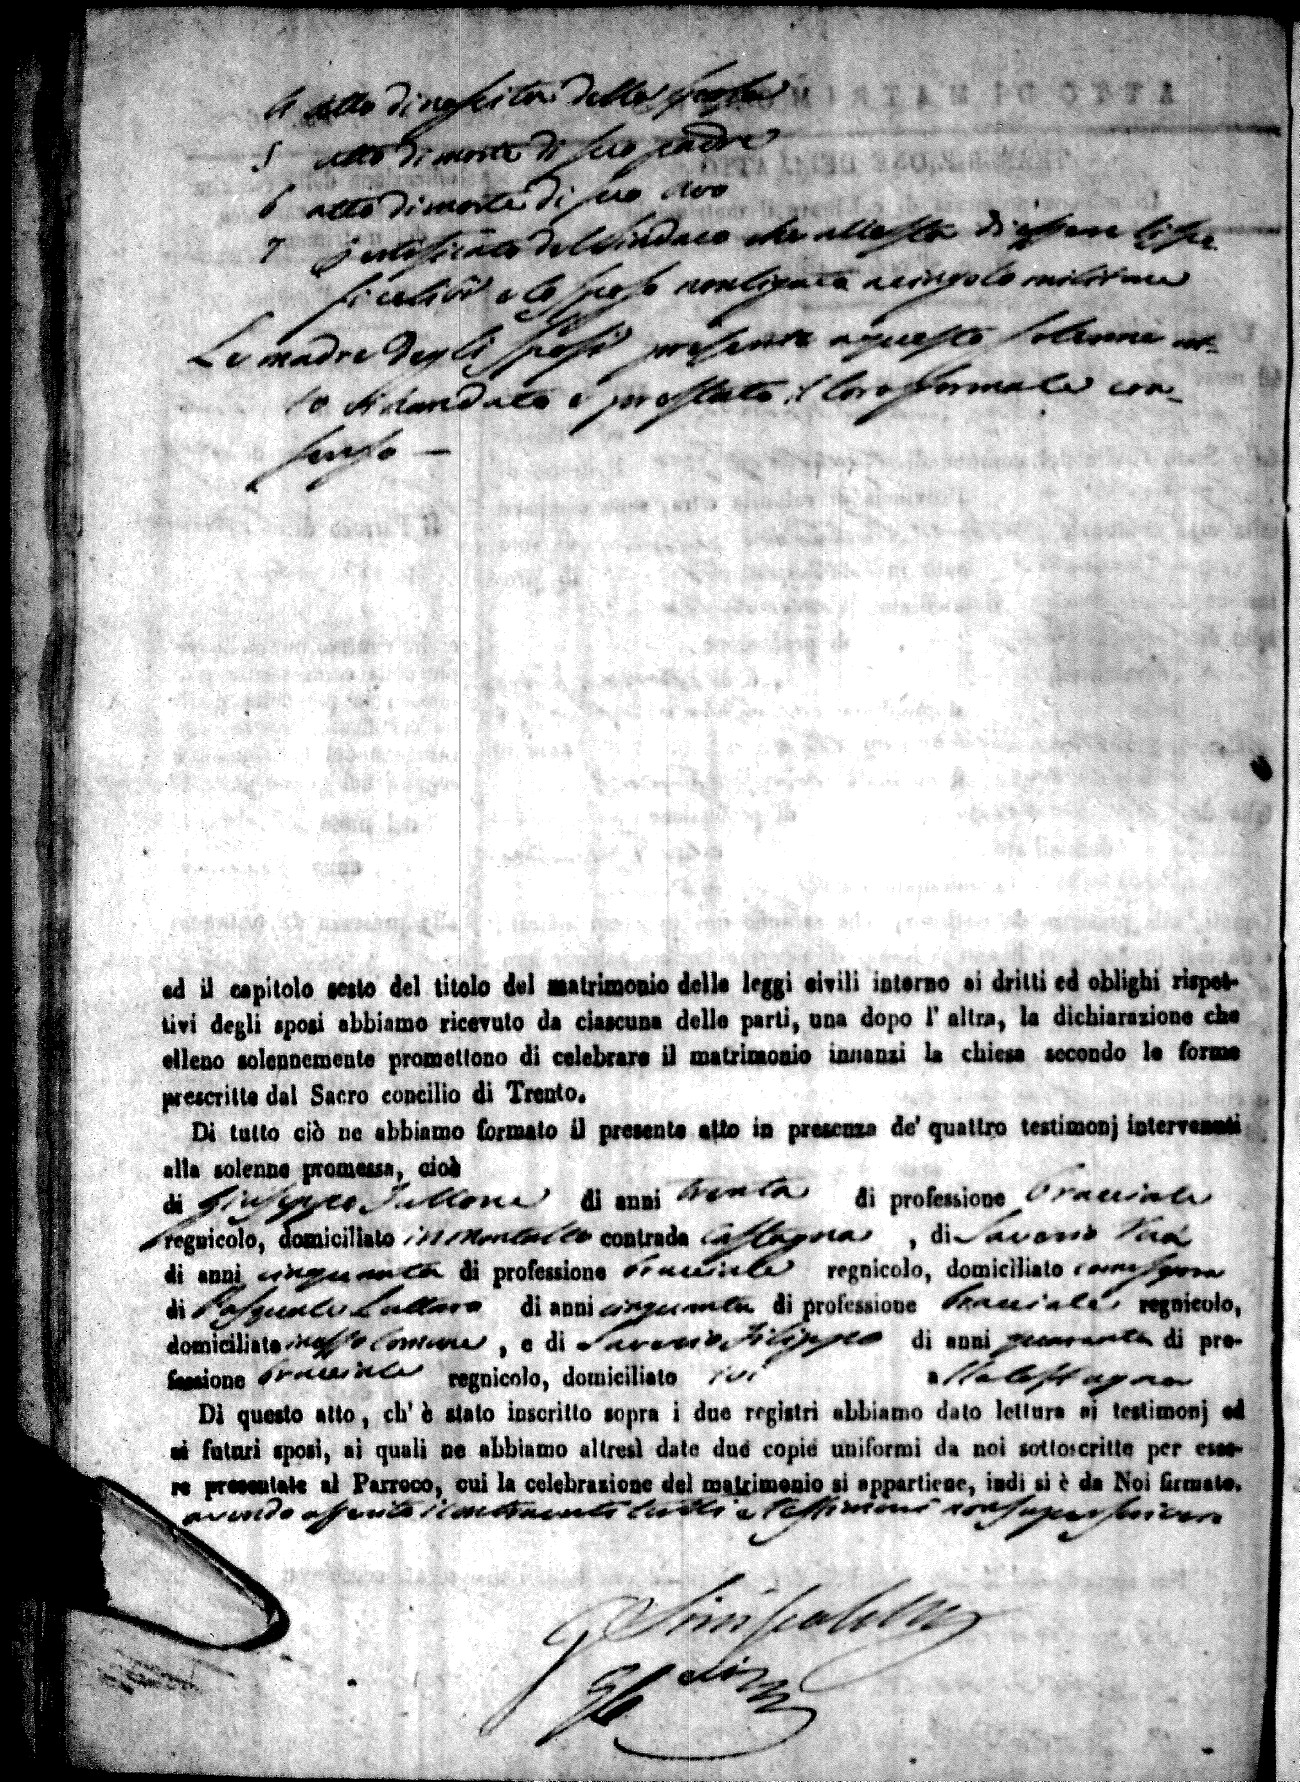 4 atto di nascita della sposa
5 atto di morte di suo padre
6 atto di morte di suo avo
7 Certificato del Sindaco che attesta di essere li spo
si celibi e lo sposo non ligato a cingolo militare
Le madre degli sposi presente a questo solenne at-
to ànno dato e prestato il loro formale con-
senso —
ed il capitolo sesto del titolo del matrimonio delle leggi civili intorno ai dritti ed oblighi rispet-
tivi degli sposi abbiamo ricevuto da ciascuna delle parti, una dopo l' altra, la dichiarazione che
elleno solennemente promettono di celebrare il matrimonio innanzi la chiesa secondo le forme
prescritte dal Sacro concilio di Trento.
Di tutto ciò ne abbiamo formato il presente atto in presenza de' quattro testimonj intervenuti
alla solenne promessa, cioè
di Giuseppe di anni trenta di professione bracciale
regnicolo, domiciliato in Montalto contrada Castagna , di Saverio
di anni cinquanta di professione bracciale regnicolo, domiciliato come sopra
di Pasquale Lattaro di anni cinquanta di professione bracciale regnicolo,
domiciliato in esso Comune , e di Saverio Filippo di anni quaranta di pro-
fessione bracciale regnicolo, domiciliato ivi
Di questo atto, ch' è stato inscritto sopra i due registri abbiamo dato lettura ai testimonj ed
ai futuri sposi, ai quali ne abbiamo altresì date due copie uniformi da noi sottoscritte per esse-
re presentate al Parroco, cui la celebrazione del matrimonio si appartiene, indi si è da Noi firmato.
avendo asserito i contraenti tutti e testimoni non saper scrivere